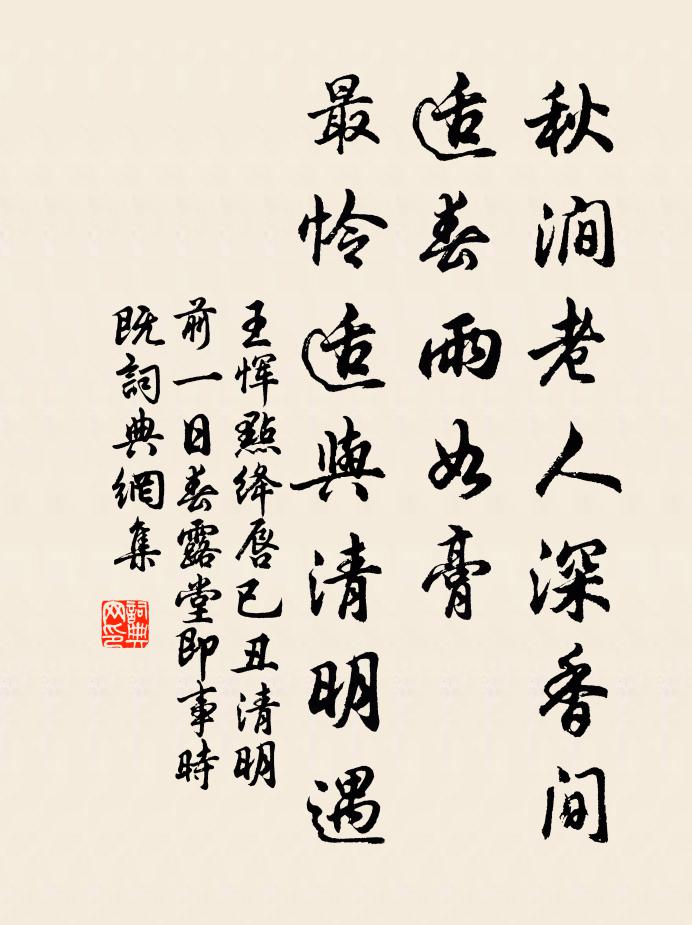 秋澗老人深香间
适春雨如膏
最怜适與清明遇
王恽點绛唇己丑清明
前一日春露堂即事時
既詞典網集
詞典
网印